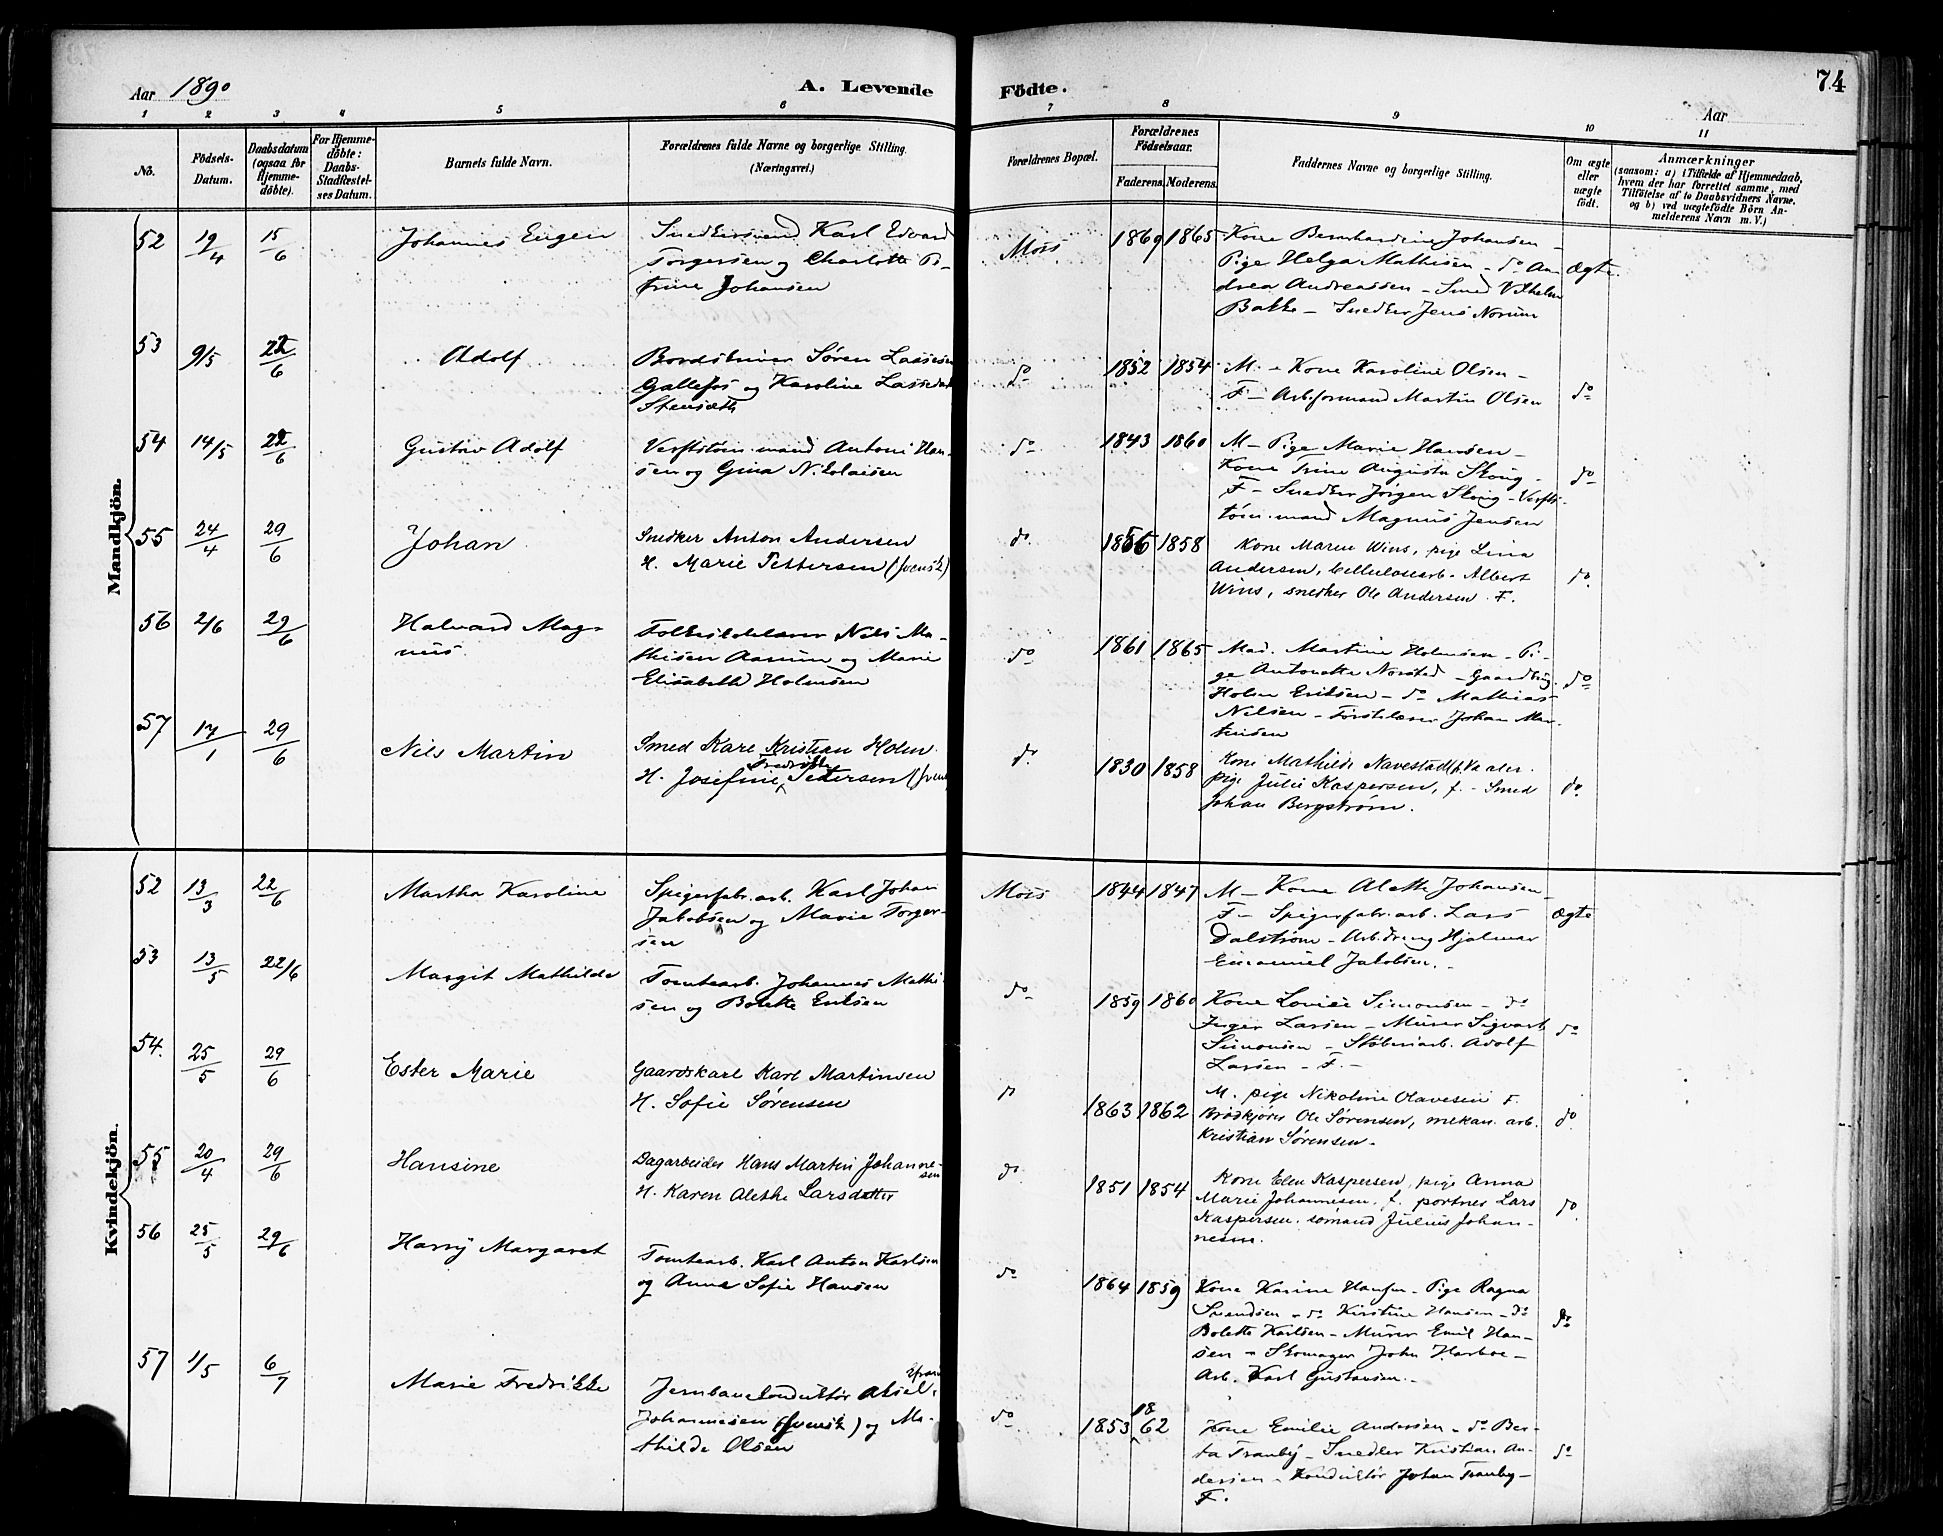 Aar 1890
A. Levende
Födte.
74
Aar
1 2 3 4 5 6 7 8 9 10 11
No.
Födsels-Datum.
Daabsdatum (ogsaa for Hjemme-döbte).
For Hjemme-döbte: Daabs-Stadfæstel-ses Datum.
Barnets fulde Navn.
Forældrenes fulde Navne og borgerlige Stilling.
(Næringsvei.)
Forældrenes Bopæl.
Forældrenes Födselsaar.
Faderens. Moderens.
Faddernes Navne og borgerlige Stilling.
Om ægte eller uægte födt.
Anmærkninger
(saasom: a) i Tilfælde af Hjemmedaab, hvem der har forrettet samme, med Tilföielse af to Daabsvidners Navne, og b) ved uægtefödte Börn Anmelderens Navn m. V.)
Mandkjön.
52 19/4 15/6 Johannes Eugen
Snedkersvend Karl Edvard
Torgersen og Charlotte Pe-
trine Johansen
Moss 1869 1865
Kone Bernhardine Johansen -
Pige Helga Mathisen - do An-
drea Andreassen - Smed Vilhelm
Bakke - Snedker Jens Norum
Ægte
53 9/5 22/6 Adolf
Bordskriver Søren Lassesen
Gallefos og Karoline Lassedatter
Stensæth
do 1852 1854
M. - Kone Karoline Olsen -
F - Arb.formand Martin Olsen
do
54 14/5 22/6 Gustav Adolf
Verftstøm.mand Antoni Han-
sen og Gina Nikolaisen
do 1843 1860
M - Pige Marie Hansen -
Kone Trine Augusta Skoug -
F - Snedker Jørgen Skoug - Verfts-
tøm.mand Magnus Jensen
do
55 24/4 29/6 Johan
Snedker Anton Andersen
H. Marie Pettersen (svensk)
do. 1856 1858
Kone Maren Wins, pige Lina
Andersen, Cellulosearb. Albert
Wins, snedker Ole Andersen. F.
do.
56 2/6 29/6 Halvard Mag-
nus.
Folkeskolelærer Nils Ma-
thisen Aarum og Marie
Elisabeth Holmsen
do 1861 1865
Mad. Martine Holmsen - Pi-
ge Antonette Norstad - Gaardbrug.
Holm Eriksen - do Mathias
Nilsen - Førstelærer Johan Mar-
thinsen
do
57 17/1 29/6 Nils Martin
Smed Karl Kristian Holm
H. Josefine Fredrikke Petersen (svensk)
do. 1830 1858
Kone Mathilde Navestad f. Vaaler.
pige Julie Kaspersen, f. - Smed
Johan Bergstrøm.
do.
Kvindekjön.
52 13/3 22/6 Martha Karoline
Spigerfabr.arb. Karl Johan
Jakobsen og Marie Torger-
sen
Moss 1844 1847
M - Kone Alethe Johansen
F - Spigerfabr.arb. Lars
Dalstrøm - Arb.dreng Hjalmar
Emanuel Jakobsen. -
Ægte
53 13/5 22/6 Margit Mathilde
Tomtearb. Johannes Mathi-
sen og Bolette Eriksen
do 1859 1860
Kone Lovise Simonsen - do
Inger Larsen - Murer Sigvart
Simonsen - Støberiarb. Adolf
Larsen - F. -
do
54. 25/5 29/6 Ester Marie
Gaardskarl Karl Martinsen
H. Sofie Sørensen
do 1863 1862
M. pige Nikoline Olavesen F.
Brødkjører Ole Sørensen, mekan. arb.
Kristian Sørensen.
do.
55 20/4 29/6 Hansine
Dagarbeider Hans Martin Johanne-
sen
H. Karen Alethe Larsdatter
do 1851 1854
Kone Elen Kaspersen, pige Anna
Marie Johannesen, f. portner Lars
Kaspersen. sømand Julius Johan-
nesen.
do.
56 25/5 29/6 Harry Margaret
Tomtearb. Karl Anton Karlsen
og Anna Sofie Hansen
do 1864 1859
Kone Karine Hansen - Pige Ragna
Svendsen - do Kirstine Hansen - do
Bolette Karlsen - Murer Emil Han-
sen - Skomager John Harboe -
Arb. Karl Gustavsen. -
do
57 1/5 6/7 Marie Fredrikke
Jernbanekonduktør Aksel
Johannesen (svensk) og Ma-
thilde Olsen
do 1853 1862
Kone Emilie Andersen - do Ber-
ta Tranby - Snedker Kristian An-
dersen - Konduktør Johan Tranby -
F.
do